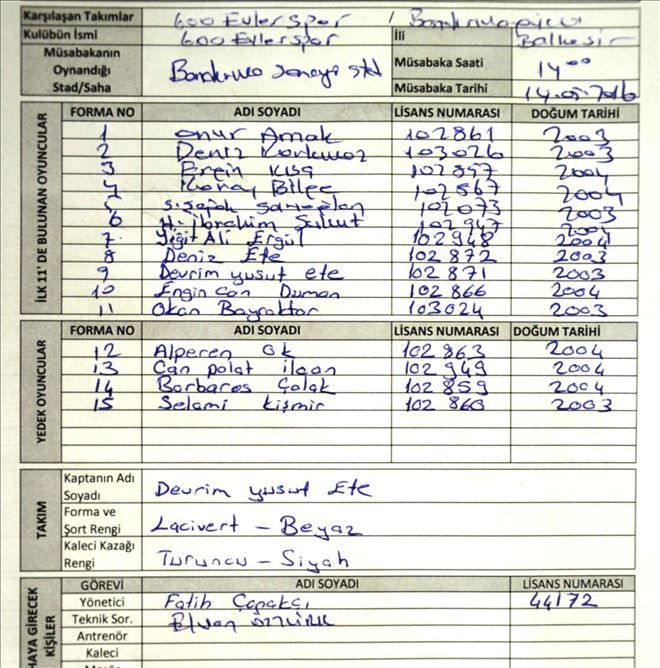 Karşılaşan Takımlar 600 Evlerspor /
Kulübün İsmi 600 Evlerspor İli Balıkesir
Müsabakanın Oynandığı Stad/Saha Bandırma Müsabaka Saati 14 00
Müsabaka Tarihi 14.05.2016
İLK 11' DE BULUNAN OYUNCULAR
FORMA NO ADI SOYADI LİSANS NUMARASI DOĞUM TARİHİ
1 onur 102861 2003
2 Deniz Korkmaz 103026 2003
3 Kısa 102857 2004
4 Koray Bilge 102867 2004
5 102073 2003
6 H. İbrahim 102947 2004
7 Yiğit Ali Ergül 102948 2004
8 Deniz Ete 102872 2003
9 Devrim yusuf ete 102871 2003
10 Engin can Duman 102866 2004
11 Okan Bayraktar 103024 2003
YEDEK OYUNCULAR
FORMA NO ADI SOYADI LİSANS NUMARASI DOĞUM TARİHİ
12 Alperen Ok 102863 2004
13 Can polat ilgan 102949 2004
14 Barbaros Çolak 102859 2004
15 Selami Kişmir 102860 2003
TAKIM
Kaptanın Adı Soyadı Devrim yusuf Ete
Forma ve Şort Rengi Lacivert - Beyaz
Kaleci Kazağı Rengi Turuncu - Siyah
HAYA GİRECEK KİŞİLER
GÖREVİ ADI SOYADI LİSANS NUMARASI
Yönetici Fatih Çapakçı 44172
Teknik Sor. Elvan öztürk
Antrenör
Kaleci